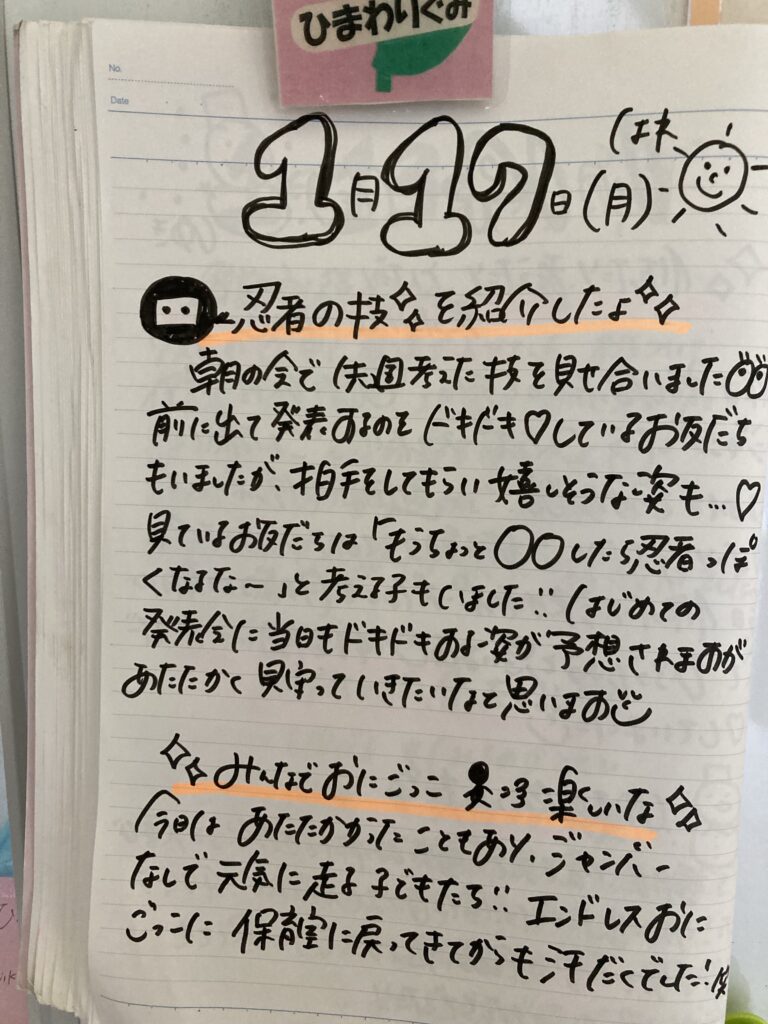 ひまわりぐみ
No.
Date
1月17日(月)はれ
忍者の技を紹介したよ
朝の会で先週考えた技を見せ合いました
前に出て発表するのをドキドキ♡しているお友だち
もいましたが、拍手をしてもらい嬉しそうな姿も…♡
見ているお友だちは「もうちょっと〇〇したら忍者っぽ
くなるな〜」と考える子もいました!!はじめての
発表会に当日もドキドキする姿が予想されますが
あたたかく見守っていきたいなと思います
みんなでおにごっこ 楽しいな
今日はあたたかかったこともあり、ジャンバー
なしで元気に走る子どもたち!!エンドレスおに
ごっこに保育室に戻ってきてからも汗だくでした!笑